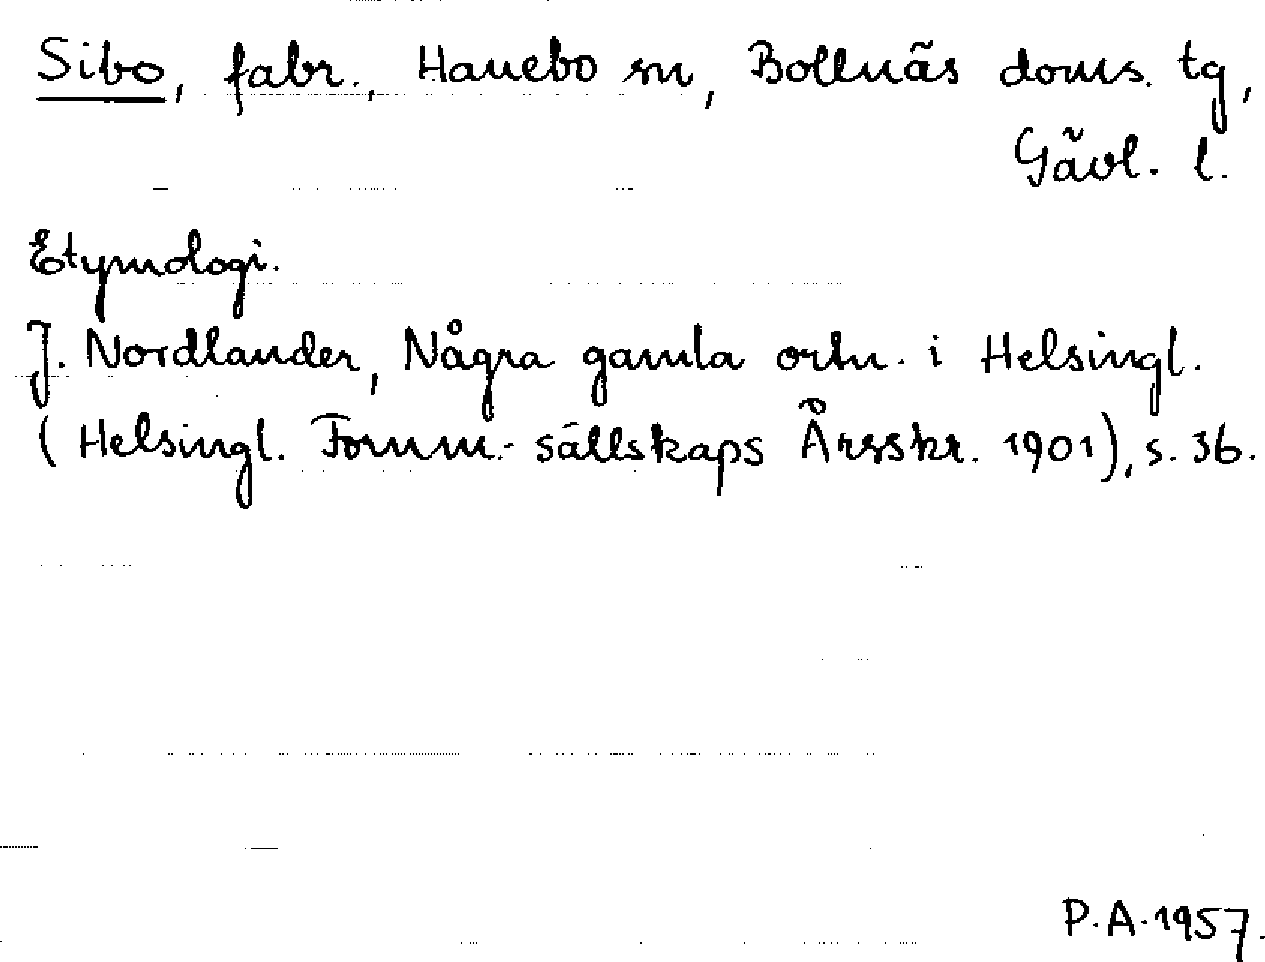 Sibo, fabr., Hanebo sn, Bollnäs doms. tg,
Gävl. l.
Etymologi.
J. Nordlander, Några gamla ortn. i Helsingl.
(Helsingl. Fornm.-sällskaps Årsskr. 1901), s. 36.
P.A. 1957.